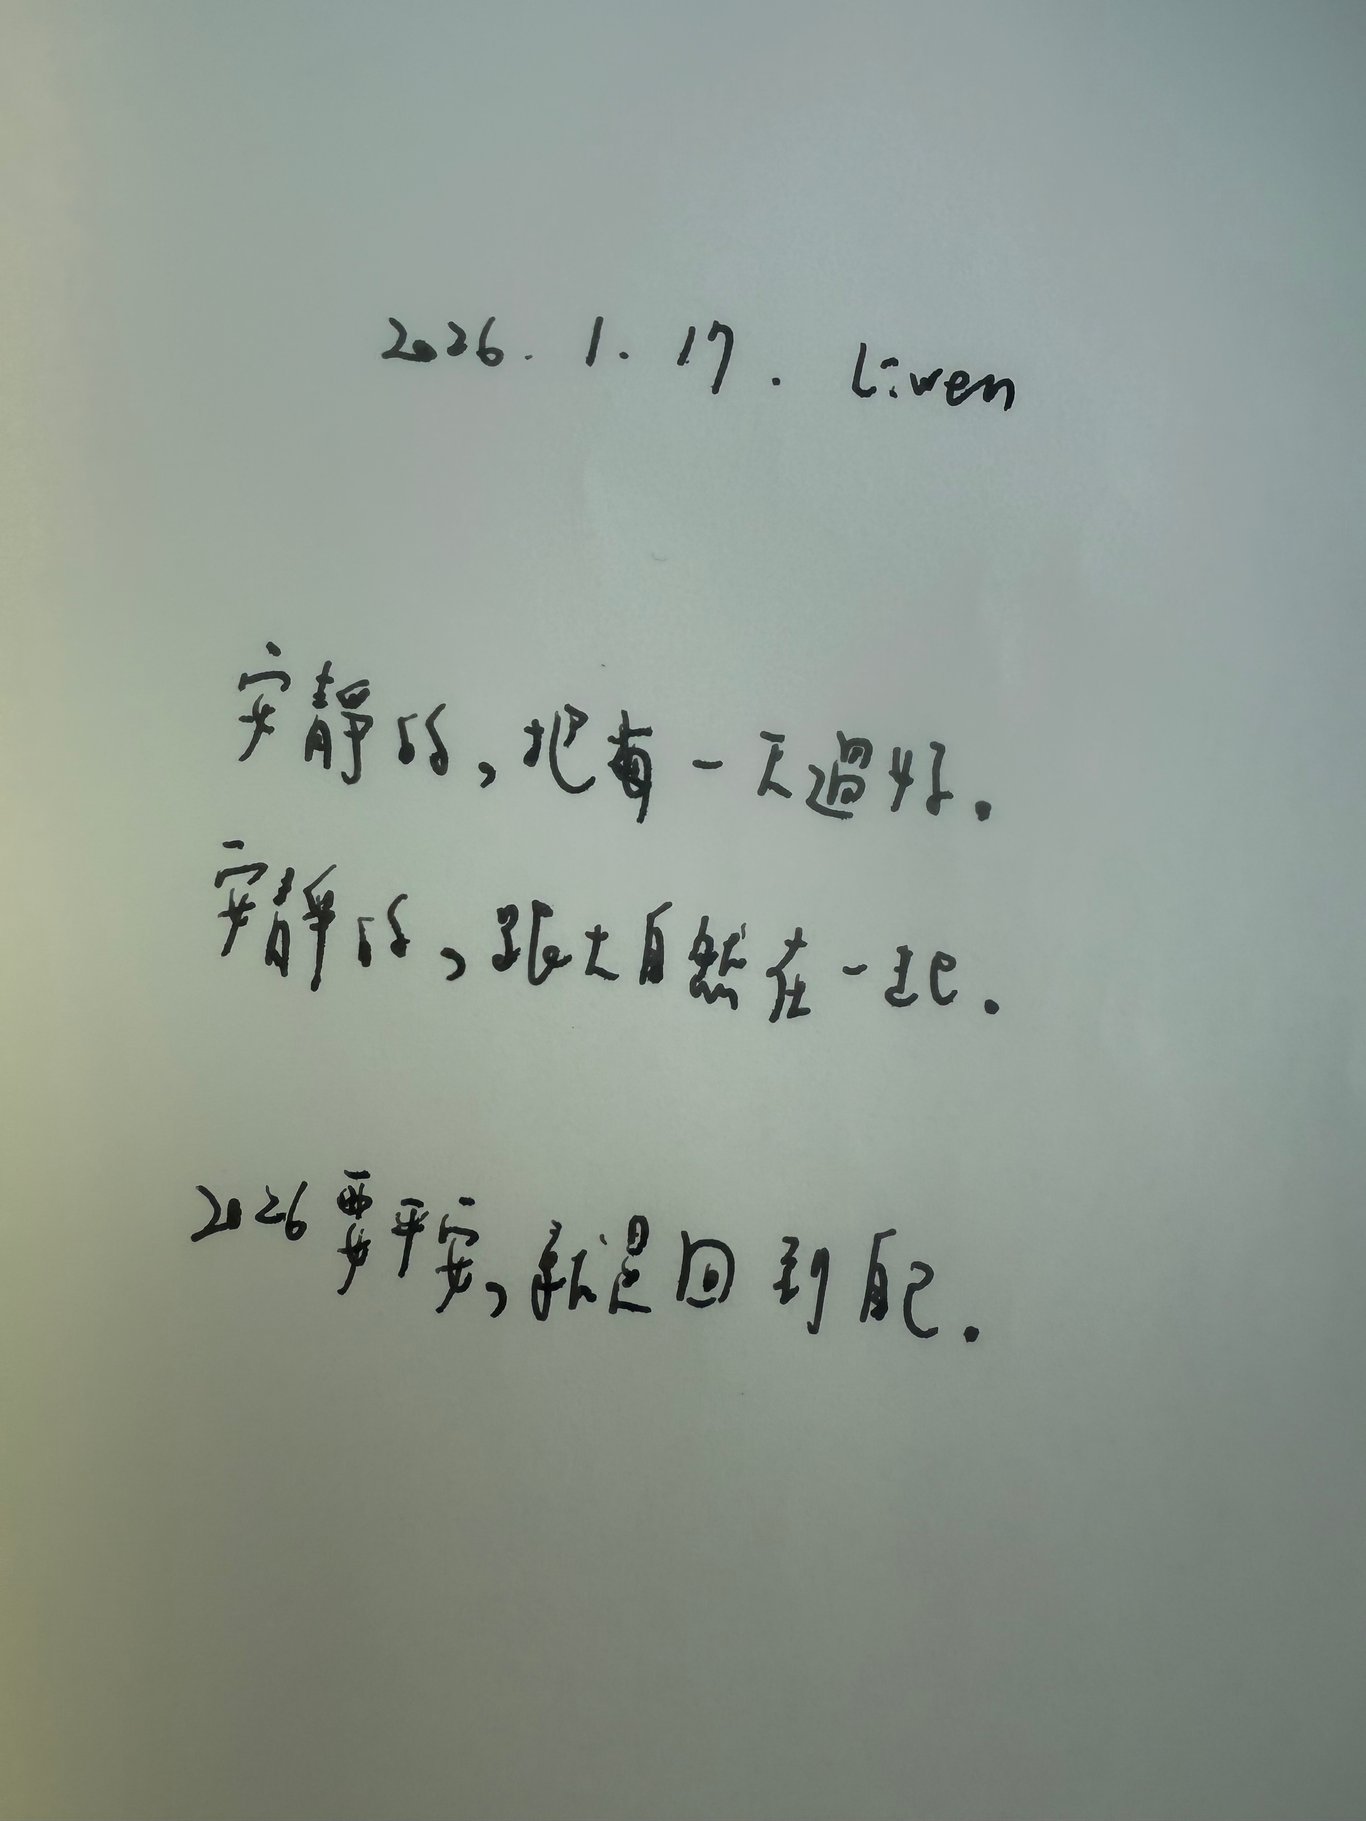 2026. 1. 17. Liwen
安靜的,把每一天過好.
安靜的,跟大自然在一起.
2026要平安,就是回到自己.